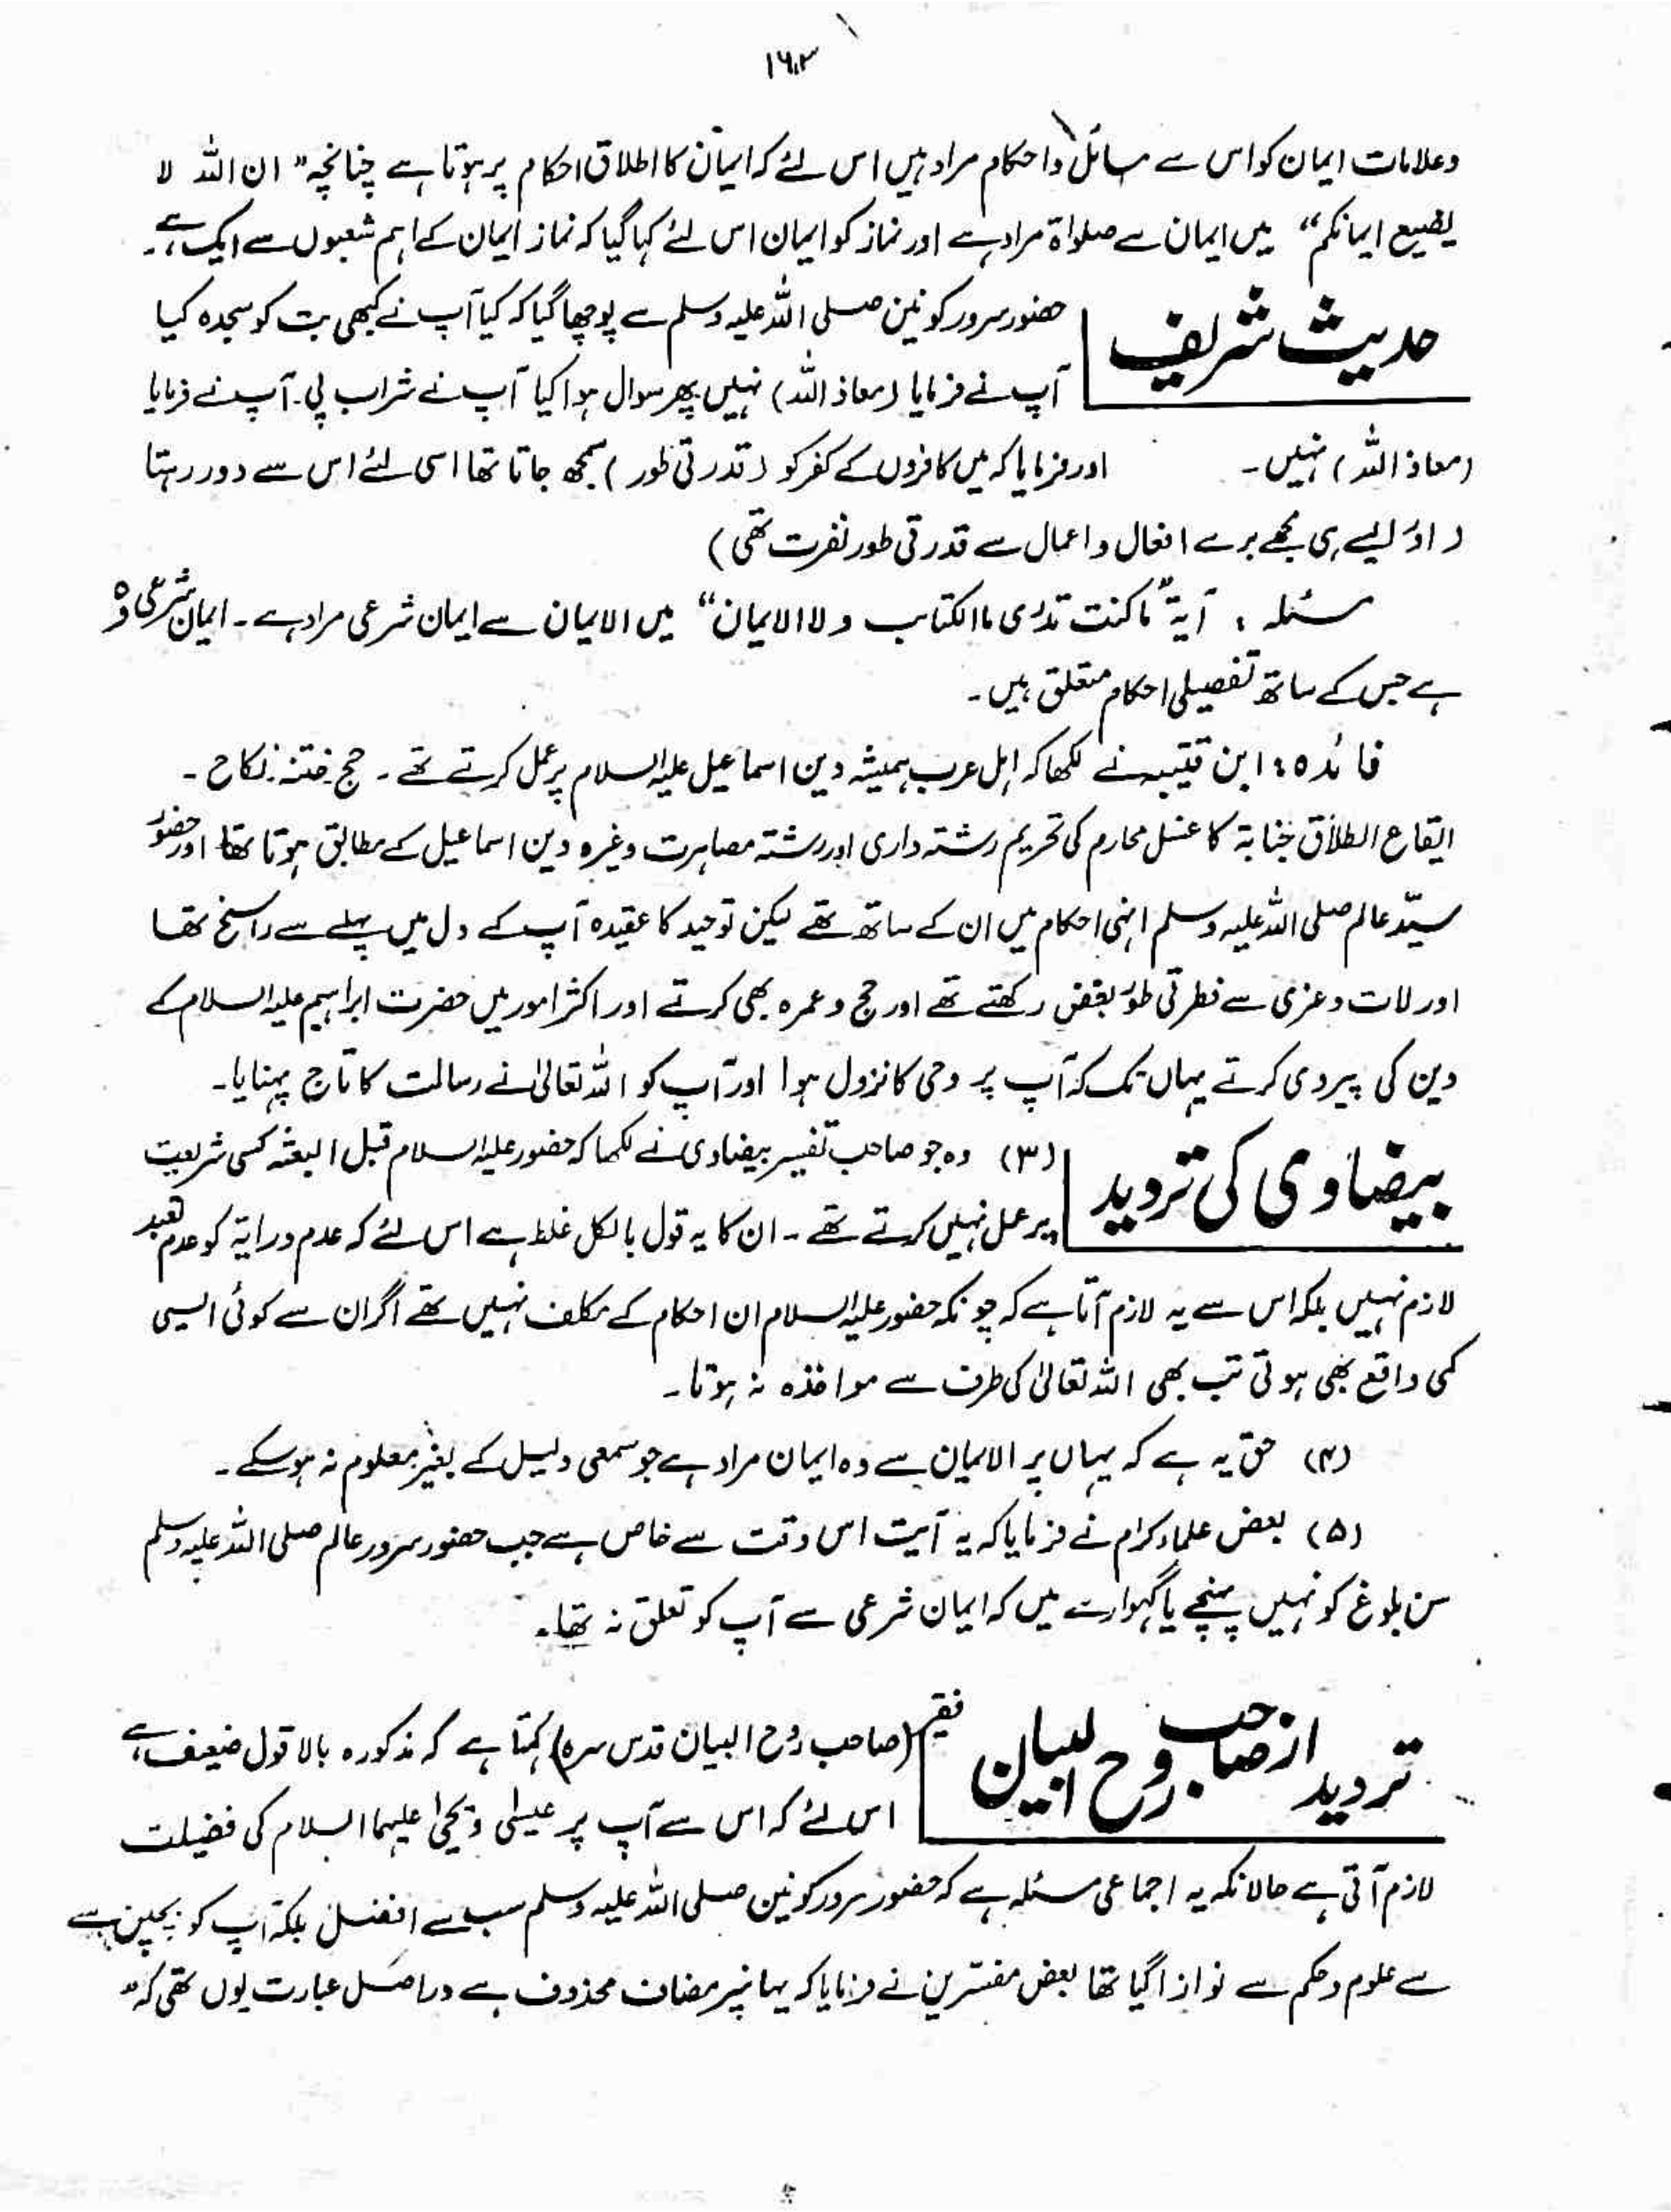 ۱۶۲
وعلامات ایمان کو اس سے مسائل واحکام مراد ہیں اس لئے کہ ایمان کا اطلاق احکام پر ہوتا ہے چنانچہ "ان اللہ لا
یضیع ایمانکم" میں ایمان سے صلواۃ مراد ہے اور نماز کو ایمان اس لئے کہا گیا کہ نماز ایمان کے اہم شعبوں سے ایک ہے۔
حدیث شریف
حضور سرور کونین صلی اللہ علیہ وسلم سے پوچھا گیا کہ کیا آپ نے کبھی بت کو سجدہ کیا
آپ نے فرمایا (معاذ اللہ) نہیں پھر سوال ہوا کیا آپ نے شراب پی۔ آپ نے فرمایا
(معاذ اللہ) نہیں۔ اور فرمایا کہ میں کافروں کے کفر کو (قدرتی طور) سمجھ جاتا تھا اسی لئے اس سے دور رہتا
(اور ایسے ہی مجھے برے افعال واعمال سے قدرتی طور نفرت تھی)
مسئلہ : آیۃ "ماکنت تدری ماالکتاب ولا الایمان" میں الایمان سے ایمان شرعی مراد ہے۔ ایمان شرعی وہ
ہے جس کے ساتھ تفصیلی احکام متعلق ہیں۔
فائدہ : ابن قتیبہ نے لکھا کہ اہل عرب ہمیشہ دین اسماعیل علیہ السلام پر عمل کرتے تھے۔ حج۔ ختنہ۔ نکاح۔
ایقاع الطلاق جنابۃ کا غسل محارم کی تحریم رشتہ داری اور رشتہ مصاہرت وغیرہ دین اسماعیل کے مطابق ہوتا تھا اور حضور
سیّد عالم صلی اللہ علیہ وسلم انہی احکام میں ان کے ساتھ تھے لیکن توحید کا عقیدہ آپ کے دل میں پہلے سے راسخ تھا
اور لات وعزی سے فطرتی طور بغض رکھتے تھے اور حج وعمرہ بھی کرتے اور اکثر امور میں حضرت ابراہیم علیہ السلام کے
دین کی پیروی کرتے یہاں تک کہ آپ پر وحی کا نزول ہوا اور آپ کو اللہ تعالیٰ نے رسالت کا تاج پہنایا۔
بیضاوی کی تردید
(۳) وہ جو صاحب تفسیر بیضاوی نے لکھا کہ حضور علیہ السلام قبل البعثہ کسی شریعت
پر عمل نہیں کرتے تھے۔ ان کا یہ قول بالکل غلط ہے اس لئے کہ عدم درایۃ کو عدم تعبد
لازم نہیں بلکہ اس سے یہ لازم آتا ہے کہ چونکہ حضور علیہ السلام ان احکام کے مکلف نہیں تھے اگر ان سے کوئی ایسی
کمی واقع بھی ہوتی تب بھی اللہ تعالیٰ کی طرف سے مواخذہ نہ ہوتا۔
(۴) حق یہ ہے کہ یہاں پر الایمان سے وہ ایمان مراد ہے جو سمعی دلیل کے بغیر معلوم نہ ہوسکے۔
(۵) بعض علماء کرام نے فرمایا کہ یہ آیت اس وقت سے خاص ہے جب حضور سرور عالم صلی اللہ علیہ وسلم
سن بلوغ کو نہیں پہنچے یا گہوارے میں کہ ایمان شرعی سے آپ کو تعلق نہ تھا۔
تردید از صاحب روح البیان
فقیر (صاحب روح البیان قدس سرہ) کہتا ہے کہ مذکورہ بالا قول ضعیف ہے
اس لئے کہ اس سے آپ پر عیسیٰ و یحیٰی علیہما السلام کی فضیلت
لازم آتی ہے حالانکہ یہ اجماعی مسئلہ ہے کہ حضور سرور کونین صلی اللہ علیہ وسلم سب سے افضل بلکہ آپ کو بچپن سے
سے علوم وحکم سے نوازا گیا تھا بعض مفسّرین نے فرمایا کہ یہانپر مضاف محذوف ہے دراصل عبارت یوں تھی کہ "